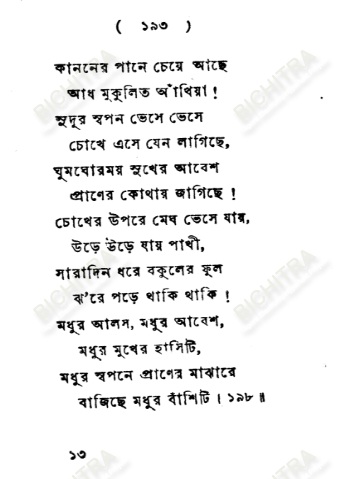 ( ১৯৩ )
কাননের পানে চেয়ে আছে
আধ মুকুলিত আঁখিয়া !
সুদূর স্বপন ভেসে ভেসে
চোখে এসে যেন লাগিছে,
ঘুমঘোরময় সুখের আবেশ
প্রাণের কোথায় জাগিছে !
চোখের উপরে মেঘ ভেসে যায়,
উড়ে উড়ে যায় পাখী,
সারাদিন ধরে বকুলের ফুল
ঝ'রে পড়ে থাকি থাকি !
মধুর আলস, মধুর আবেশ,
মধুর মুখের হাসিটি,
মধুর স্বপনে প্রাণের মাঝারে
বাজিছে মধুর বাঁশিটি । ১৯৮ ॥
১৩
BICHITRA